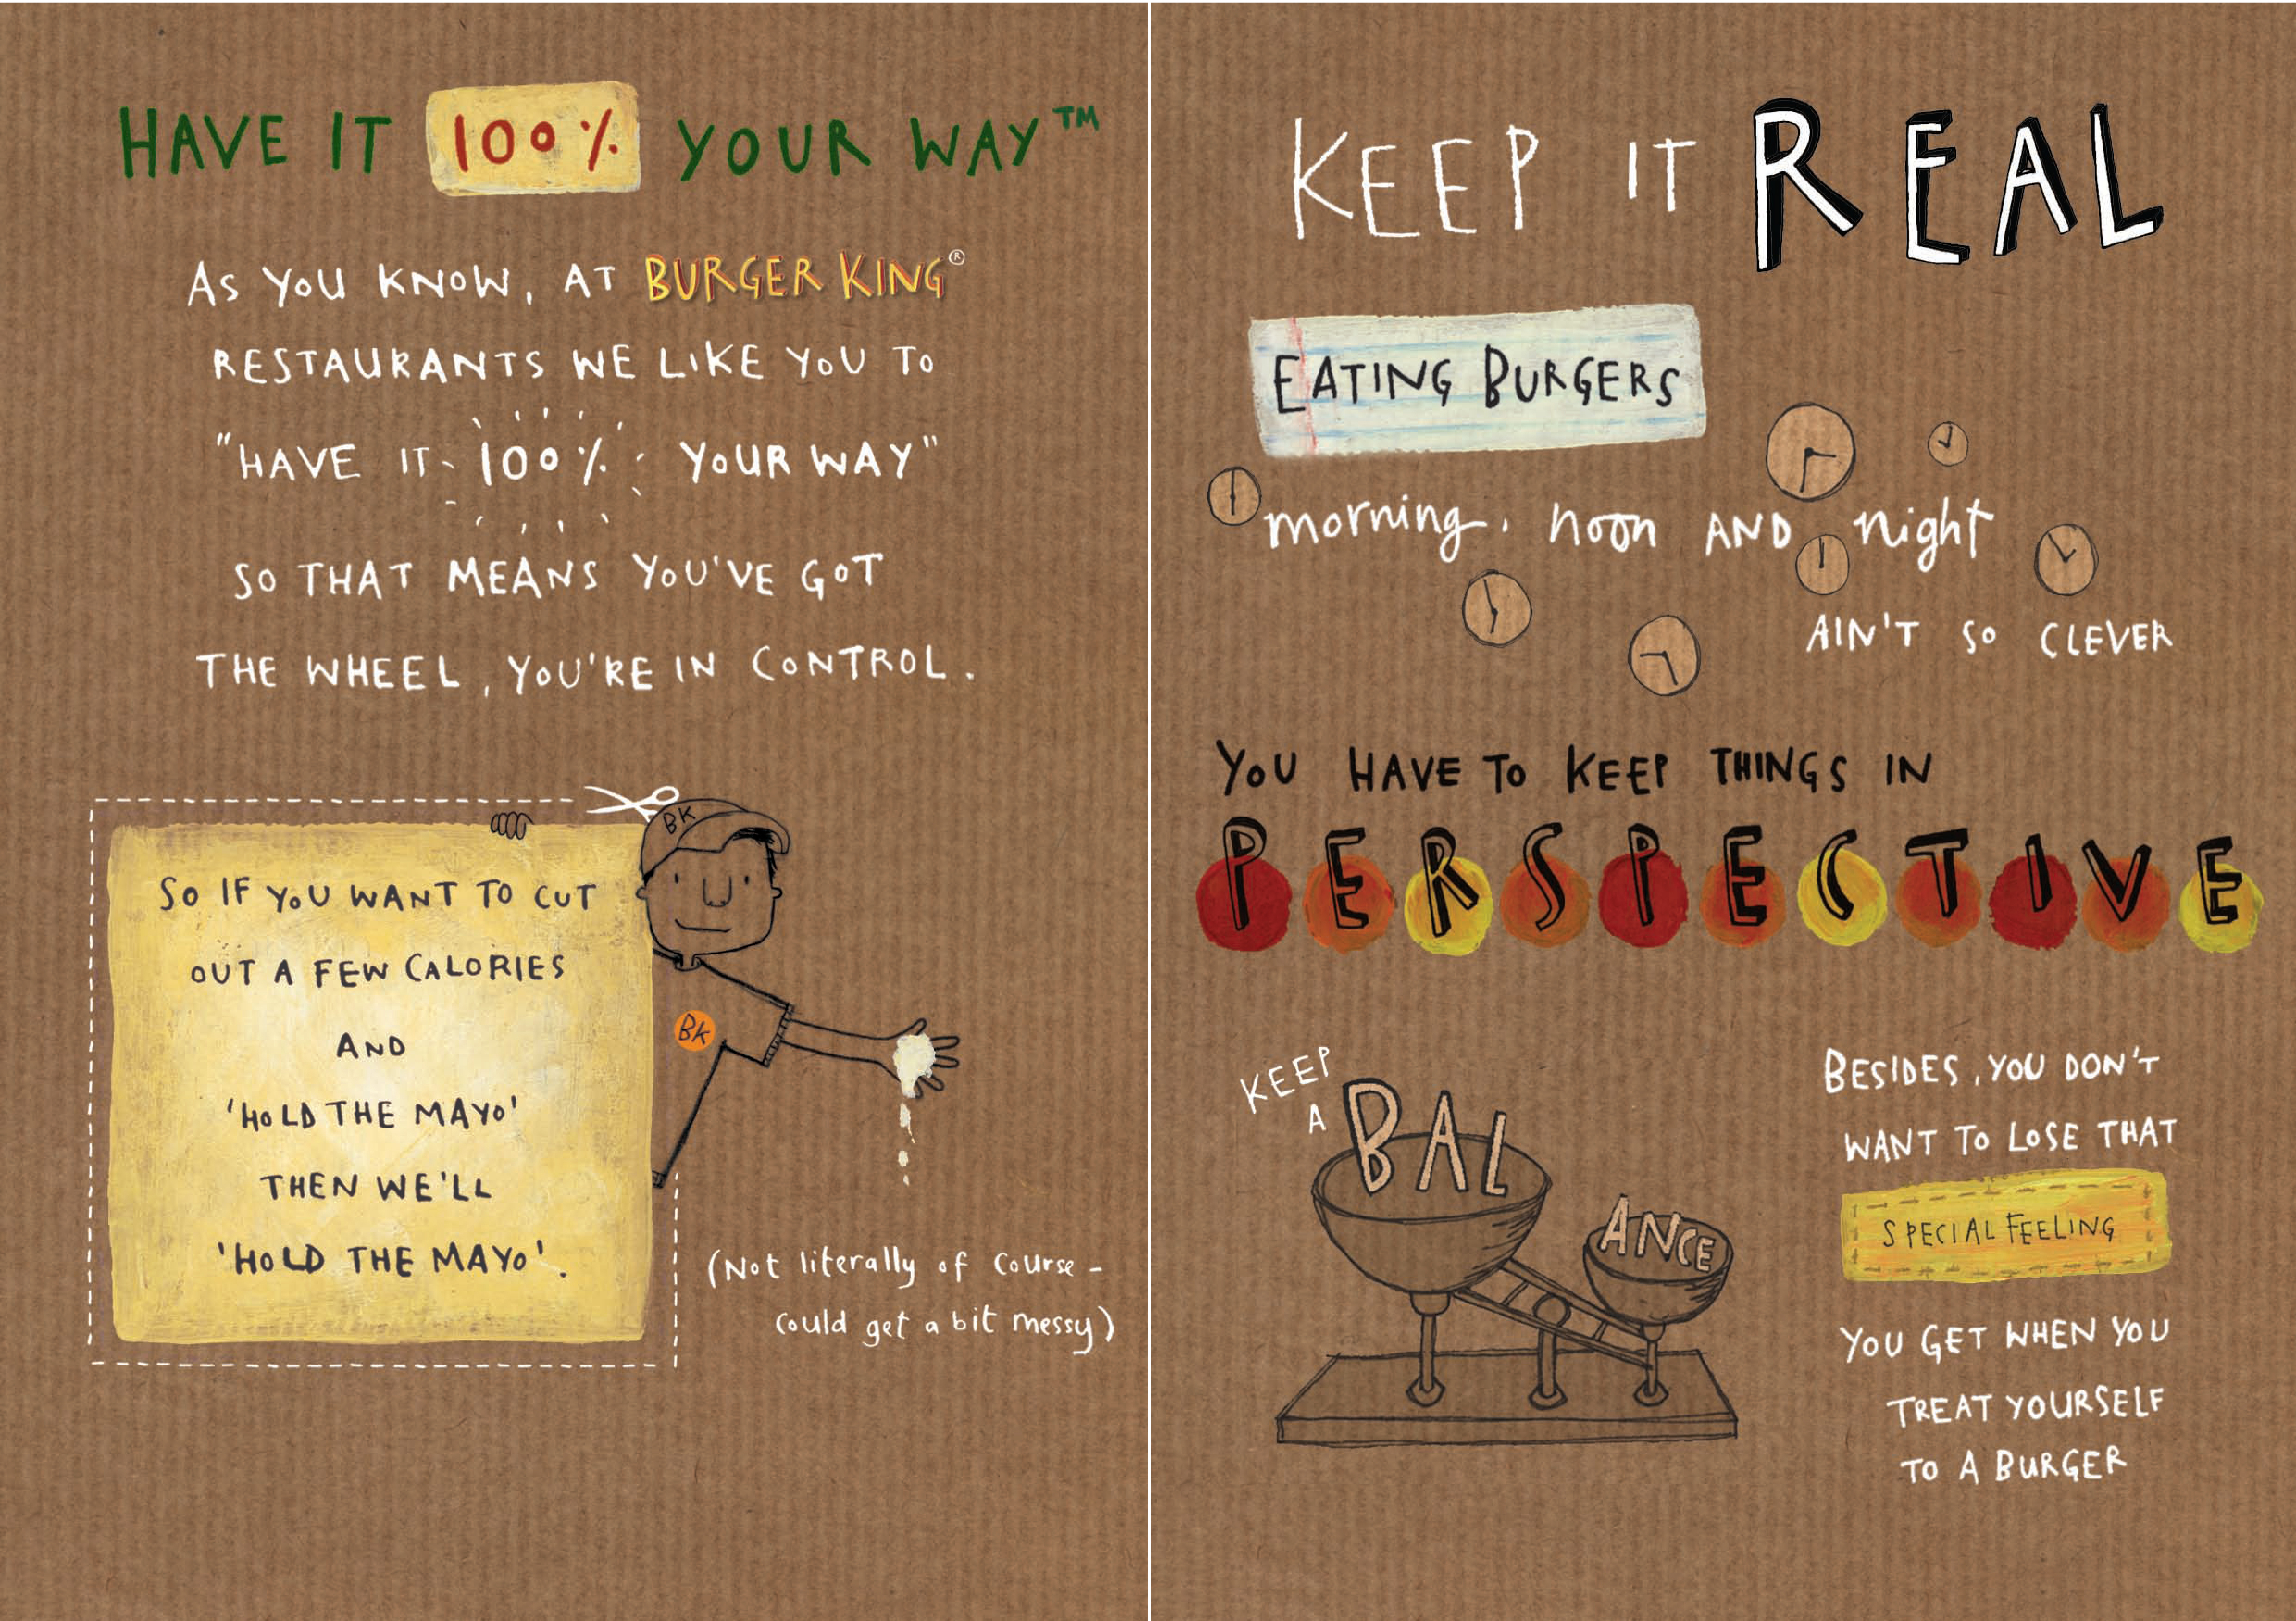 HAVE IT 100% YOUR WAY™
AS YOU KNOW, AT BURGER KING®
RESTAURANTS WE LIKE YOU TO
"HAVE IT 100% YOUR WAY"
SO THAT MEANS YOU'VE GOT
THE WHEEL, YOU'RE IN CONTROL.
BK
SO IF YOU WANT TO CUT
OUT A FEW CALORIES
AND
'HOLD THE MAYO'
THEN WE'LL
'HOLD THE MAYO'.
BK
(Not literally of course -
could get a bit messy)
KEEP IT REAL
EATING BURGERS
morning, noon AND night
AIN'T SO CLEVER
YOU HAVE TO KEEP THINGS IN
PERSPECTIVE
KEEP
A
BAL
ANCE
BESIDES, YOU DON'T
WANT TO LOSE THAT
SPECIAL FEELING
YOU GET WHEN YOU
TREAT YOURSELF
TO A BURGER